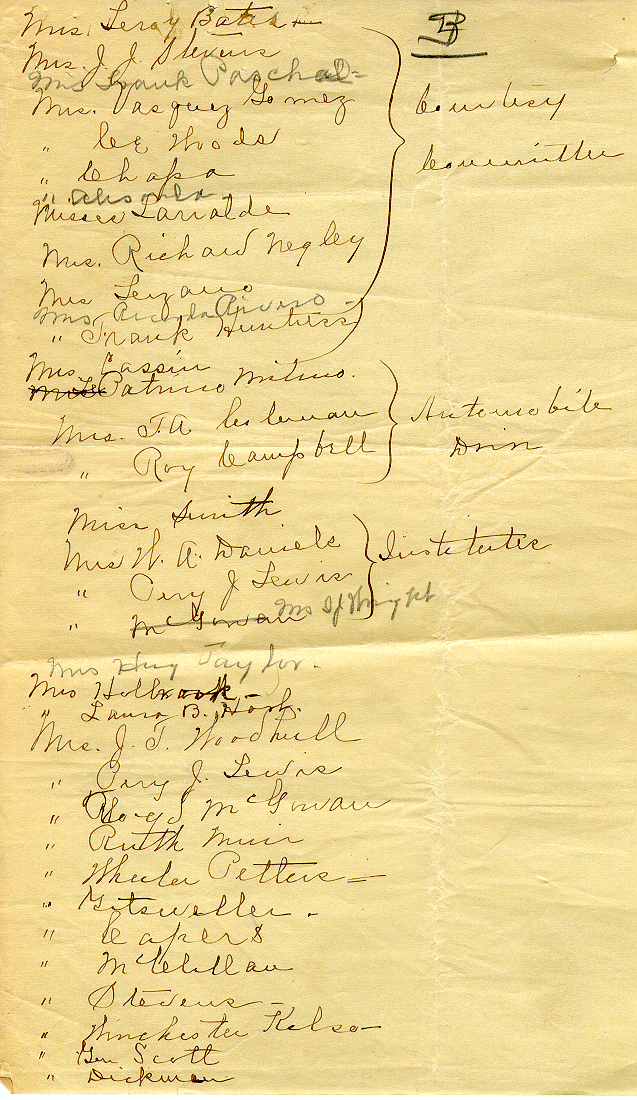 Mrs. Leroy Bates -
Mrs. J. J. Stevens
Mrs Frank Paschal -
Mrs. Vasquez Gomez
Courtesy
" Woods
Committee
" Chapa
Misses Larralde
Mrs. Richard Negley
Mrs Lozano
Mrs Rivero -
" Frank Huntress
Mrs. Cassin
Patricio Milmo.
Mrs. T. A. Coleman
Automobile
" Roy Campbell
Miss Smith
Mrs W. A. Daniels
Institutes
" Perry J Lewis
" McGowan Mrs Wright
Mrs Taylor.
Mrs Holbrook -
" Laura B. Hart.
Mrs. J. T. Woodhull
" Perry J. Lewis
" Floyd McGowan
" Ruth Muir
" Wheeler Pettus -
" Gutzweiller -
" Capers
" McClellan
" Stevens -
" Winchester Kelso -
" Gen Scott
" Dickman